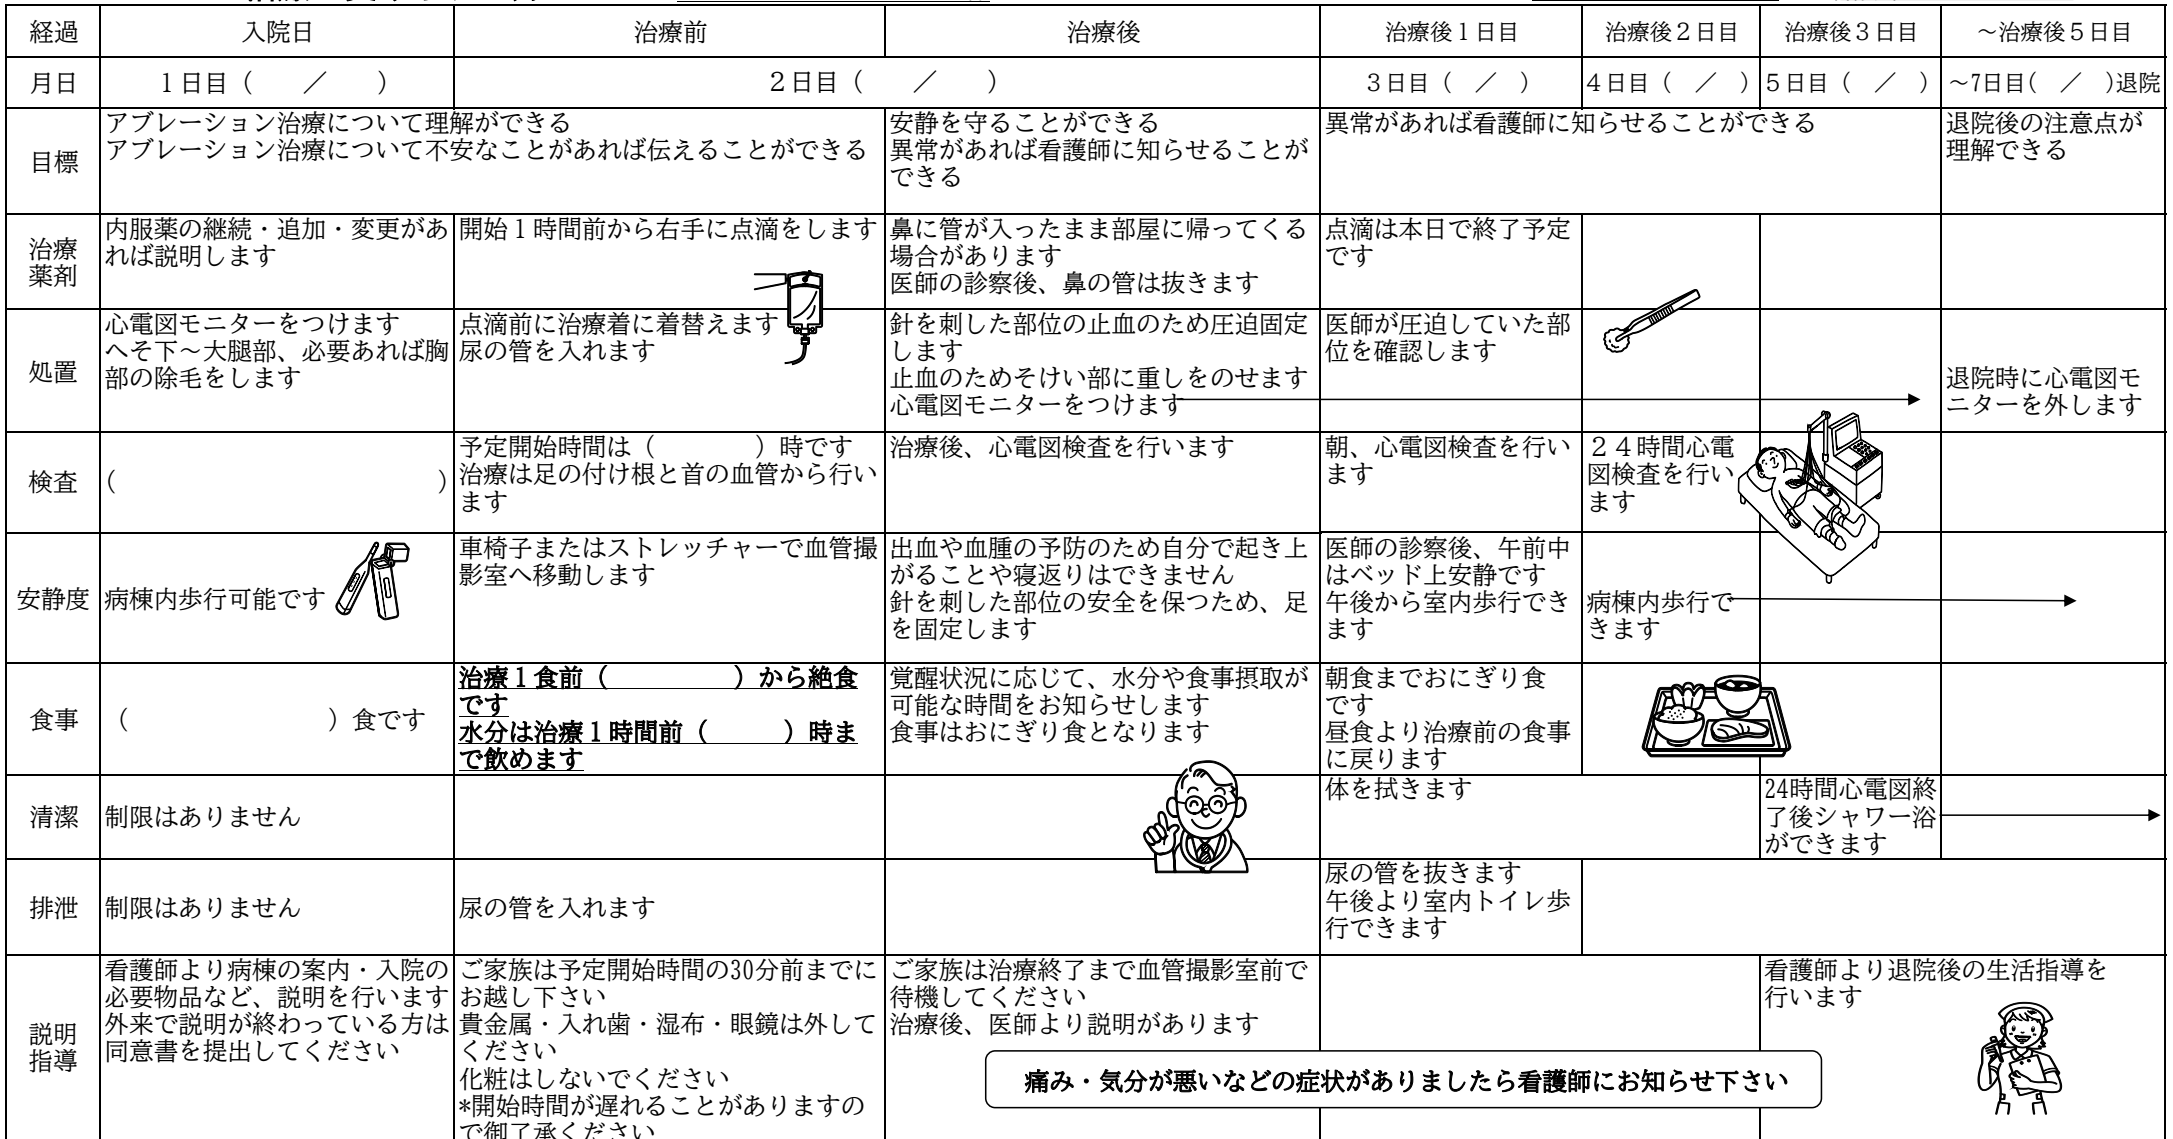 経過
入院日
治療前
治療後
治療後１日目
治療後２日目
治療後３日目
～治療後５日目
月日
１日目（　　／　　）
２日目（　　／　　）
３日目（　／　）
４日目（　／　）
５日目（　／　）
～7日目(　／　)退院
目標
アブレーション治療について理解ができる
アブレーション治療について不安なことがあれば伝えることができる
安静を守ることができる
異常があれば看護師に知らせることが
できる
異常があれば看護師に知らせることができる
退院後の注意点が
理解できる
治療
薬剤
内服薬の継続・追加・変更があ
れば説明します
開始１時間前から右手に点滴をします
鼻に管が入ったまま部屋に帰ってくる
場合があります
医師の診察後、鼻の管は抜きます
点滴は本日で終了予定
です
処置
心電図モニターをつけます
へそ下～大腿部、必要あれば胸
部の除毛をします
点滴前に治療着に着替えます
尿の管を入れます
針を刺した部位の止血のため圧迫固定
します
止血のためそけい部に重しをのせます
心電図モニターをつけます
医師が圧迫していた部
位を確認します
退院時に心電図モ
ニターを外します
検査
(　　　　　　　　　　　　　)
予定開始時間は（　　　　）時です
治療は足の付け根と首の血管から行い
ます
治療後、心電図検査を行います
朝、心電図検査を行い
ます
２４時間心電
図検査を行い
ます
安静度
病棟内歩行可能です
車椅子またはストレッチャーで血管撮
影室へ移動します
出血や血腫の予防のため自分で起き上
がることや寝返りはできません
針を刺した部位の安全を保つため、足
を固定します
医師の診察後、午前中
はベッド上安静です
午後から室内歩行でき
ます
病棟内歩行で
きます
食事
（　　　　　　　　）食です
治療１食前（　　　　　）から絶食
です
水分は治療１時間前（　　　）時ま
で飲めます
覚醒状況に応じて、水分や食事摂取が
可能な時間をお知らせします
食事はおにぎり食となります
朝食までおにぎり食
です
昼食より治療前の食事
に戻ります
清潔
制限はありません
体を拭きます
24時間心電図終
了後シャワー浴
ができます
排泄
制限はありません
尿の管を入れます
尿の管を抜きます
午後より室内トイレ歩
行できます
説明
指導
看護師より病棟の案内・入院の
必要物品など、説明を行います
外来で説明が終わっている方は
同意書を提出してください
ご家族は予定開始時間の30分前までに
お越し下さい
貴金属・入れ歯・湿布・眼鏡は外して
ください
化粧はしないでください
*開始時間が遅れることがありますの
で御了承ください
ご家族は治療終了まで血管撮影室前で
待機してください
治療後、医師より説明があります
看護師より退院後の生活指導を
行います
痛み・気分が悪いなどの症状がありましたら看護師にお知らせ下さい